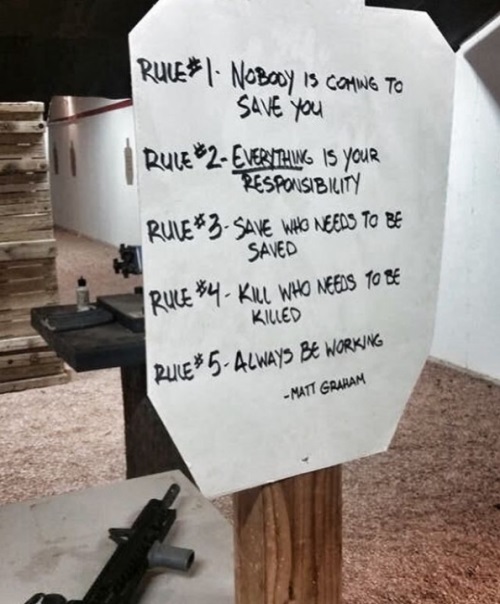 RULE #1- NOBODY IS COMING TO
SAVE YOU
RULE #2- EVERYTHING IS YOUR
RESPONSIBILITY
RULE #3- SAVE WHO NEEDS TO BE
SAVED
RULE #4- KILL WHO NEEDS TO BE
KILLED
RULE #5- ALWAYS BE WORKING
-MATT GRAHAM